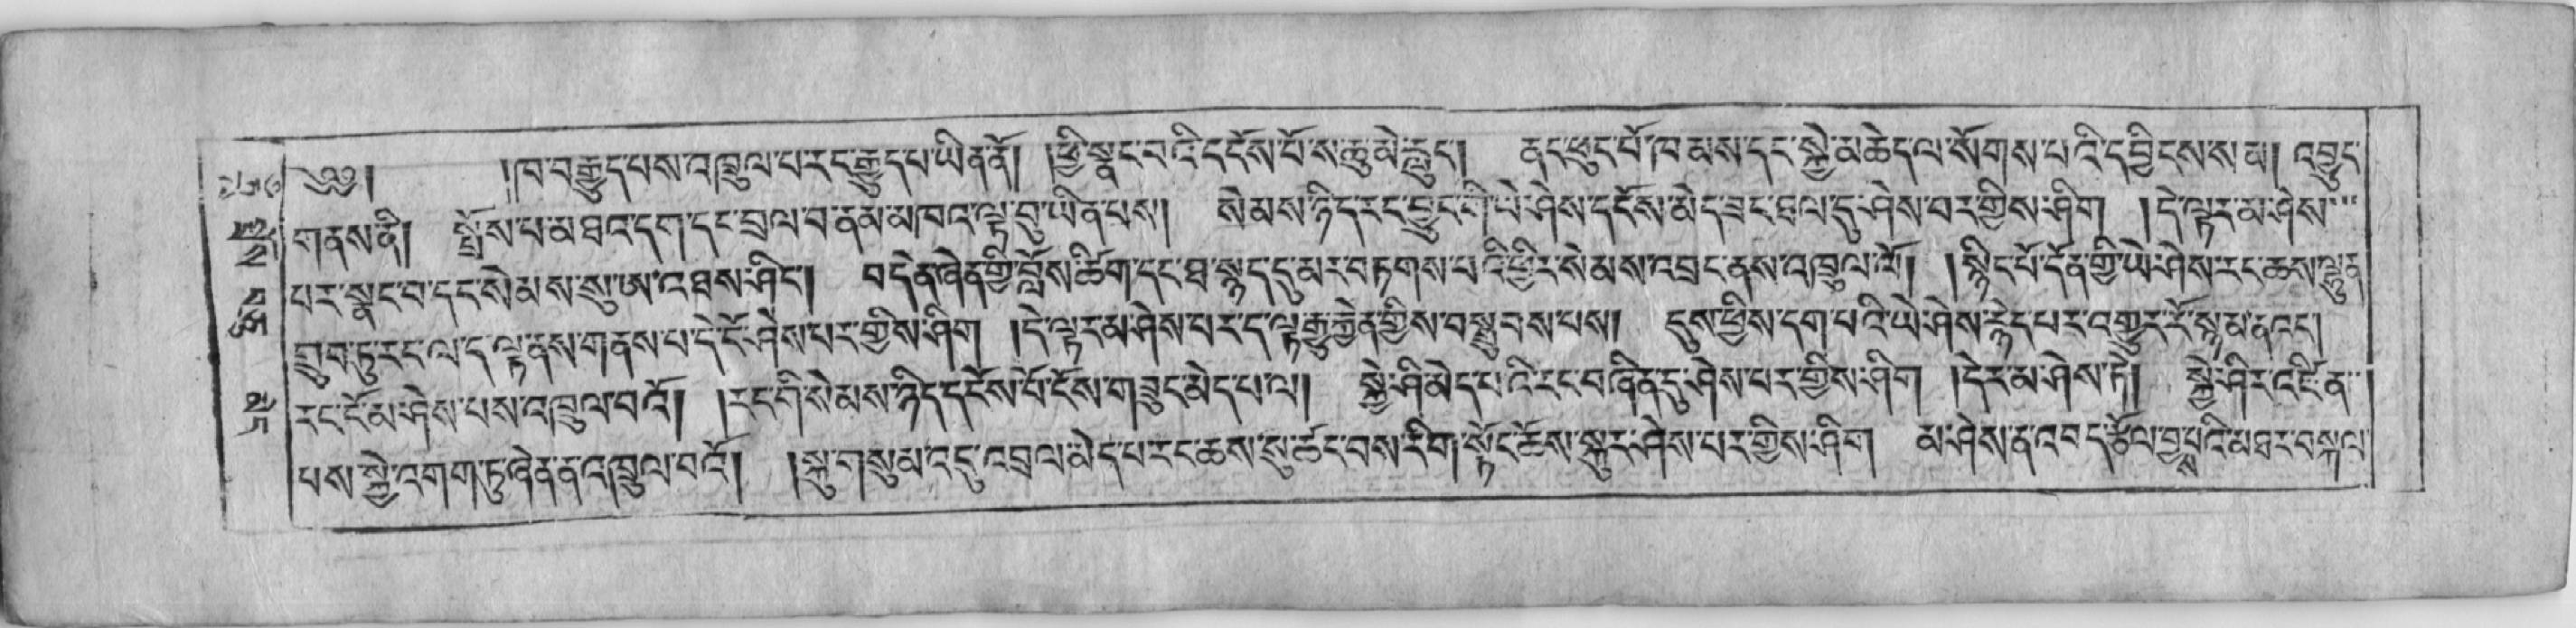 ༄༅། །ཁ་བརྒྱུད་པས་འཁྲུལ་པ་རང་རྒྱུད་པ་ཡིན་ནོ། །ཕྱི་སྣང་བའི་དངོས་པོ་ས་ཆུ་མེ་རླུང་། ནང་ཕུང་པོ་ཁམས་དང་སྐྱེ་མཆེད་ལ་སོགས་པའི་དབྱིངས་ས་མ། འབྱུང་
གནས་ནི། སྤྲོས་པ་མཐའ་དག་དང་བྲལ་བ་ནམ་མཁའ་ལྟ་བུ་ཡིན་པས། སེམས་ཉིད་རང་བྱུང་གི་ཡེ་ཤེས་དངོས་མེད་ཟང་ཐལ་དུ་ཤེས་བར་གྱིས་ཤིག །དེ་ལྟར་མ་ཤེས་
པར་སྣང་བ་དང་སེམས་སུ་ཨ་འཐས་ཤིང་། བདེན་ཞེན་གྱི་བློས་ཚིག་དང་ཐ་སྙད་དུ་མར་བཏགས་པའི་ཕྱིར་སེམས་འབྲང་ནས་འཁྲུལ་ལོ། །སྙིང་པོ་དོན་གྱི་ཡེ་ཤེས་རང་ཆས་ལྷུན་
གྲུབ་ཏུ་རང་ལ་ད་ལྟ་ནས་གནས་པ་དེ་ངོ་ཤེས་པར་གྱིས་ཤིག །དེ་ལྟར་མ་ཤེས་པར་ད་ལྟ་རྒྱུ་རྐྱེན་གྱིས་བསྒྲུབས་པས། དུས་ཕྱིས་དག་པའི་ཡེ་ཤེས་རྙེད་པར་འགྱུར་རོ་སྙམ་ན་འང་།
རང་ངོ་མ་ཤེས་པས་འཁྲུལ་བའོ། །རང་གི་སེམས་ཉིད་དངོས་པོ་ངོས་གཟུང་མེད་པ་ལ། སྐྱེ་ཤི་མེད་པའི་རང་བཞིན་དུ་ཤེས་པར་གྱིས་ཤིག །དེར་མ་ཤེས་ཏེ། སྐྱེ་ཤིར་འཛིན་
པས་སྐྱེ་འགག་ཏུ་ཞེན་ན་འཁྲུལ་བའོ། །སྐུ་གསུམ་འདུ་འབྲལ་མེད་པ་རང་ཆས་སུ་ཚང་བས་རིག་སྟོང་ཆོས་སྐུར་ཤེས་པར་གྱིས་ཤིག མ་ཤེས་ན་འབད་རྩོལ་བྱ་བའི་མཐར་བསྐལ་